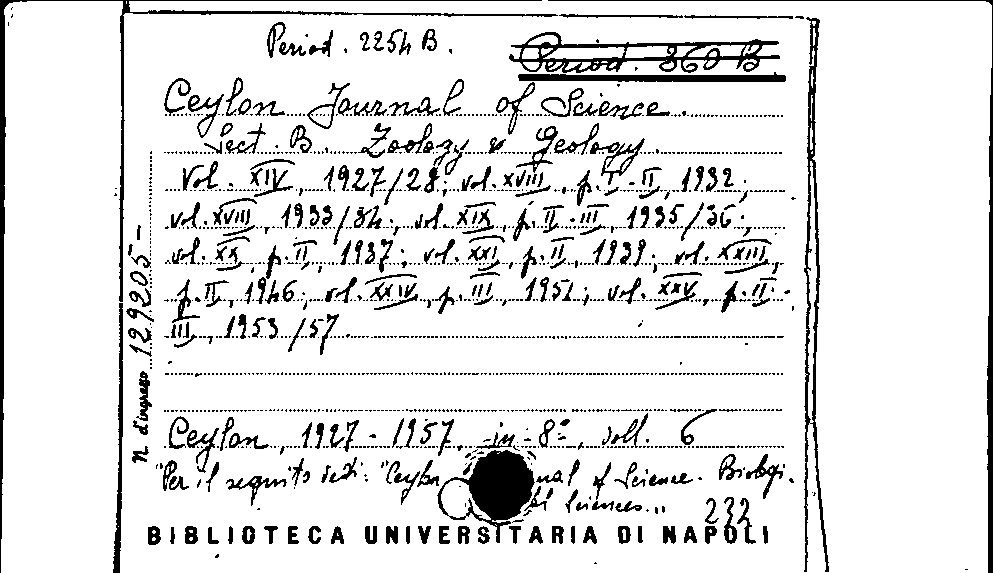 Period. 2254 B.
Period. 360 B.
Ceylon Journal of Science.
Sect. B. Zoology & Geology.
Vol. XIV, 1927/28; vol. XVII, p. I-II, 1932;
vol. XVIII, 1933/34; vol. XIX, p. II-III, 1935/36;
vol. XX, p. II, 1937; vol. XXI, p. II, 1939; vol. XXIII,
p. II, 1946; vol. XXIV, p. III, 1951; vol. XXV, p. II-
III, 1953/57.
N. d'ingresso 129205-
Ceylon, 1927-1957, in-8°, voll. 6
"Per il seguito vedi: "Ceylon nal of Science. Biologi.
Sciences."
232
BIBLIOTECA UNIVERSITARIA DI NAPOLI